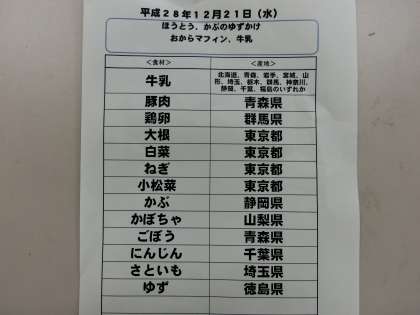 平成２８年１２月２１日（水）
ほうとう、かぶのゆずかけ
おからマフィン、牛乳
＜食材＞ ＜産地＞
牛乳 北海道、青森、岩手、宮城、山
形、埼玉、栃木、群馬、神奈川、
静岡、千葉、福島のいずれか
豚肉 青森県
鶏卵 群馬県
大根 東京都
白菜 東京都
ねぎ 東京都
小松菜 東京都
かぶ 静岡県
かぼちゃ 山梨県
ごぼう 青森県
にんじん 千葉県
さといも 埼玉県
ゆず 徳島県